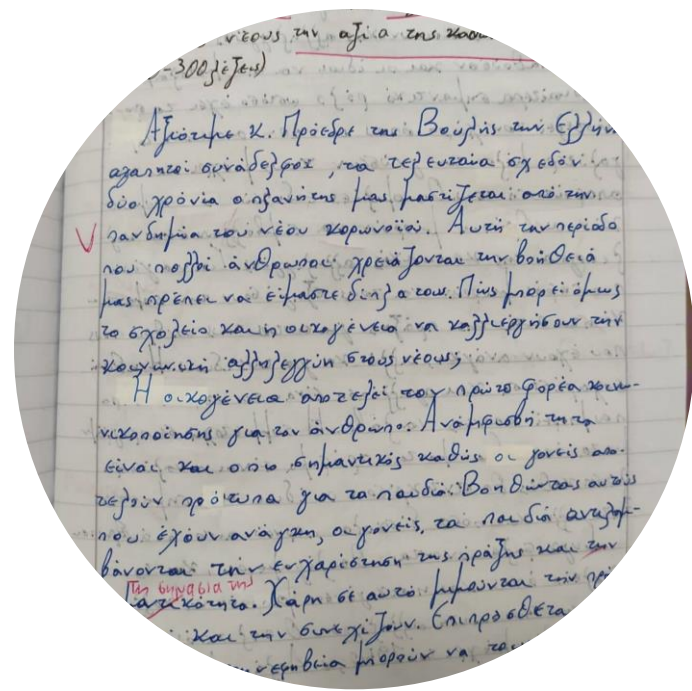 νέους την αξία της κοιν
-300 λέξεις)
Αξιότιμε κ. Πρόεδρε της Βουλής των Ελλήν
αγαπητοί συνάδελφοι, τα τελευταία σχεδόν
δύο χρόνια ο πλανήτης μας μαστίζεται από την
πανδημία του νέου κορωνοϊού. Αυτή την περίοδο
που πολλοί άνθρωποι χρειάζονται την βοήθειά
μας πρέπει να είμαστε δίπλα τους. Πώς μπορεί όμως
το σχολείο και η οικογένεια να καλλιεργήσουν την
κοινωνική αλληλεγγύη στους νέους;
Η οικογένεια αποτελεί τον πρώτο φορέα κοινω-
νικοποίησης για τον άνθρωπο. Αναμφισβήτητα
είναι και ο πιο σημαντικός καθώς οι γονείς απο-
τελούν πρότυπα για τα παιδιά. Βοηθώντας αυτούς
που έχουν ανάγκη, οι γονείς, τα παιδιά αντιλαμ-
βάνονται την ευχαρίστηση της πράξης και την
τη σημασία της
Χάρη σε αυτό μιμούνται την πρά
και την συνεχίζουν. Επιπρόσθετα
εφηβεία μπορούν να